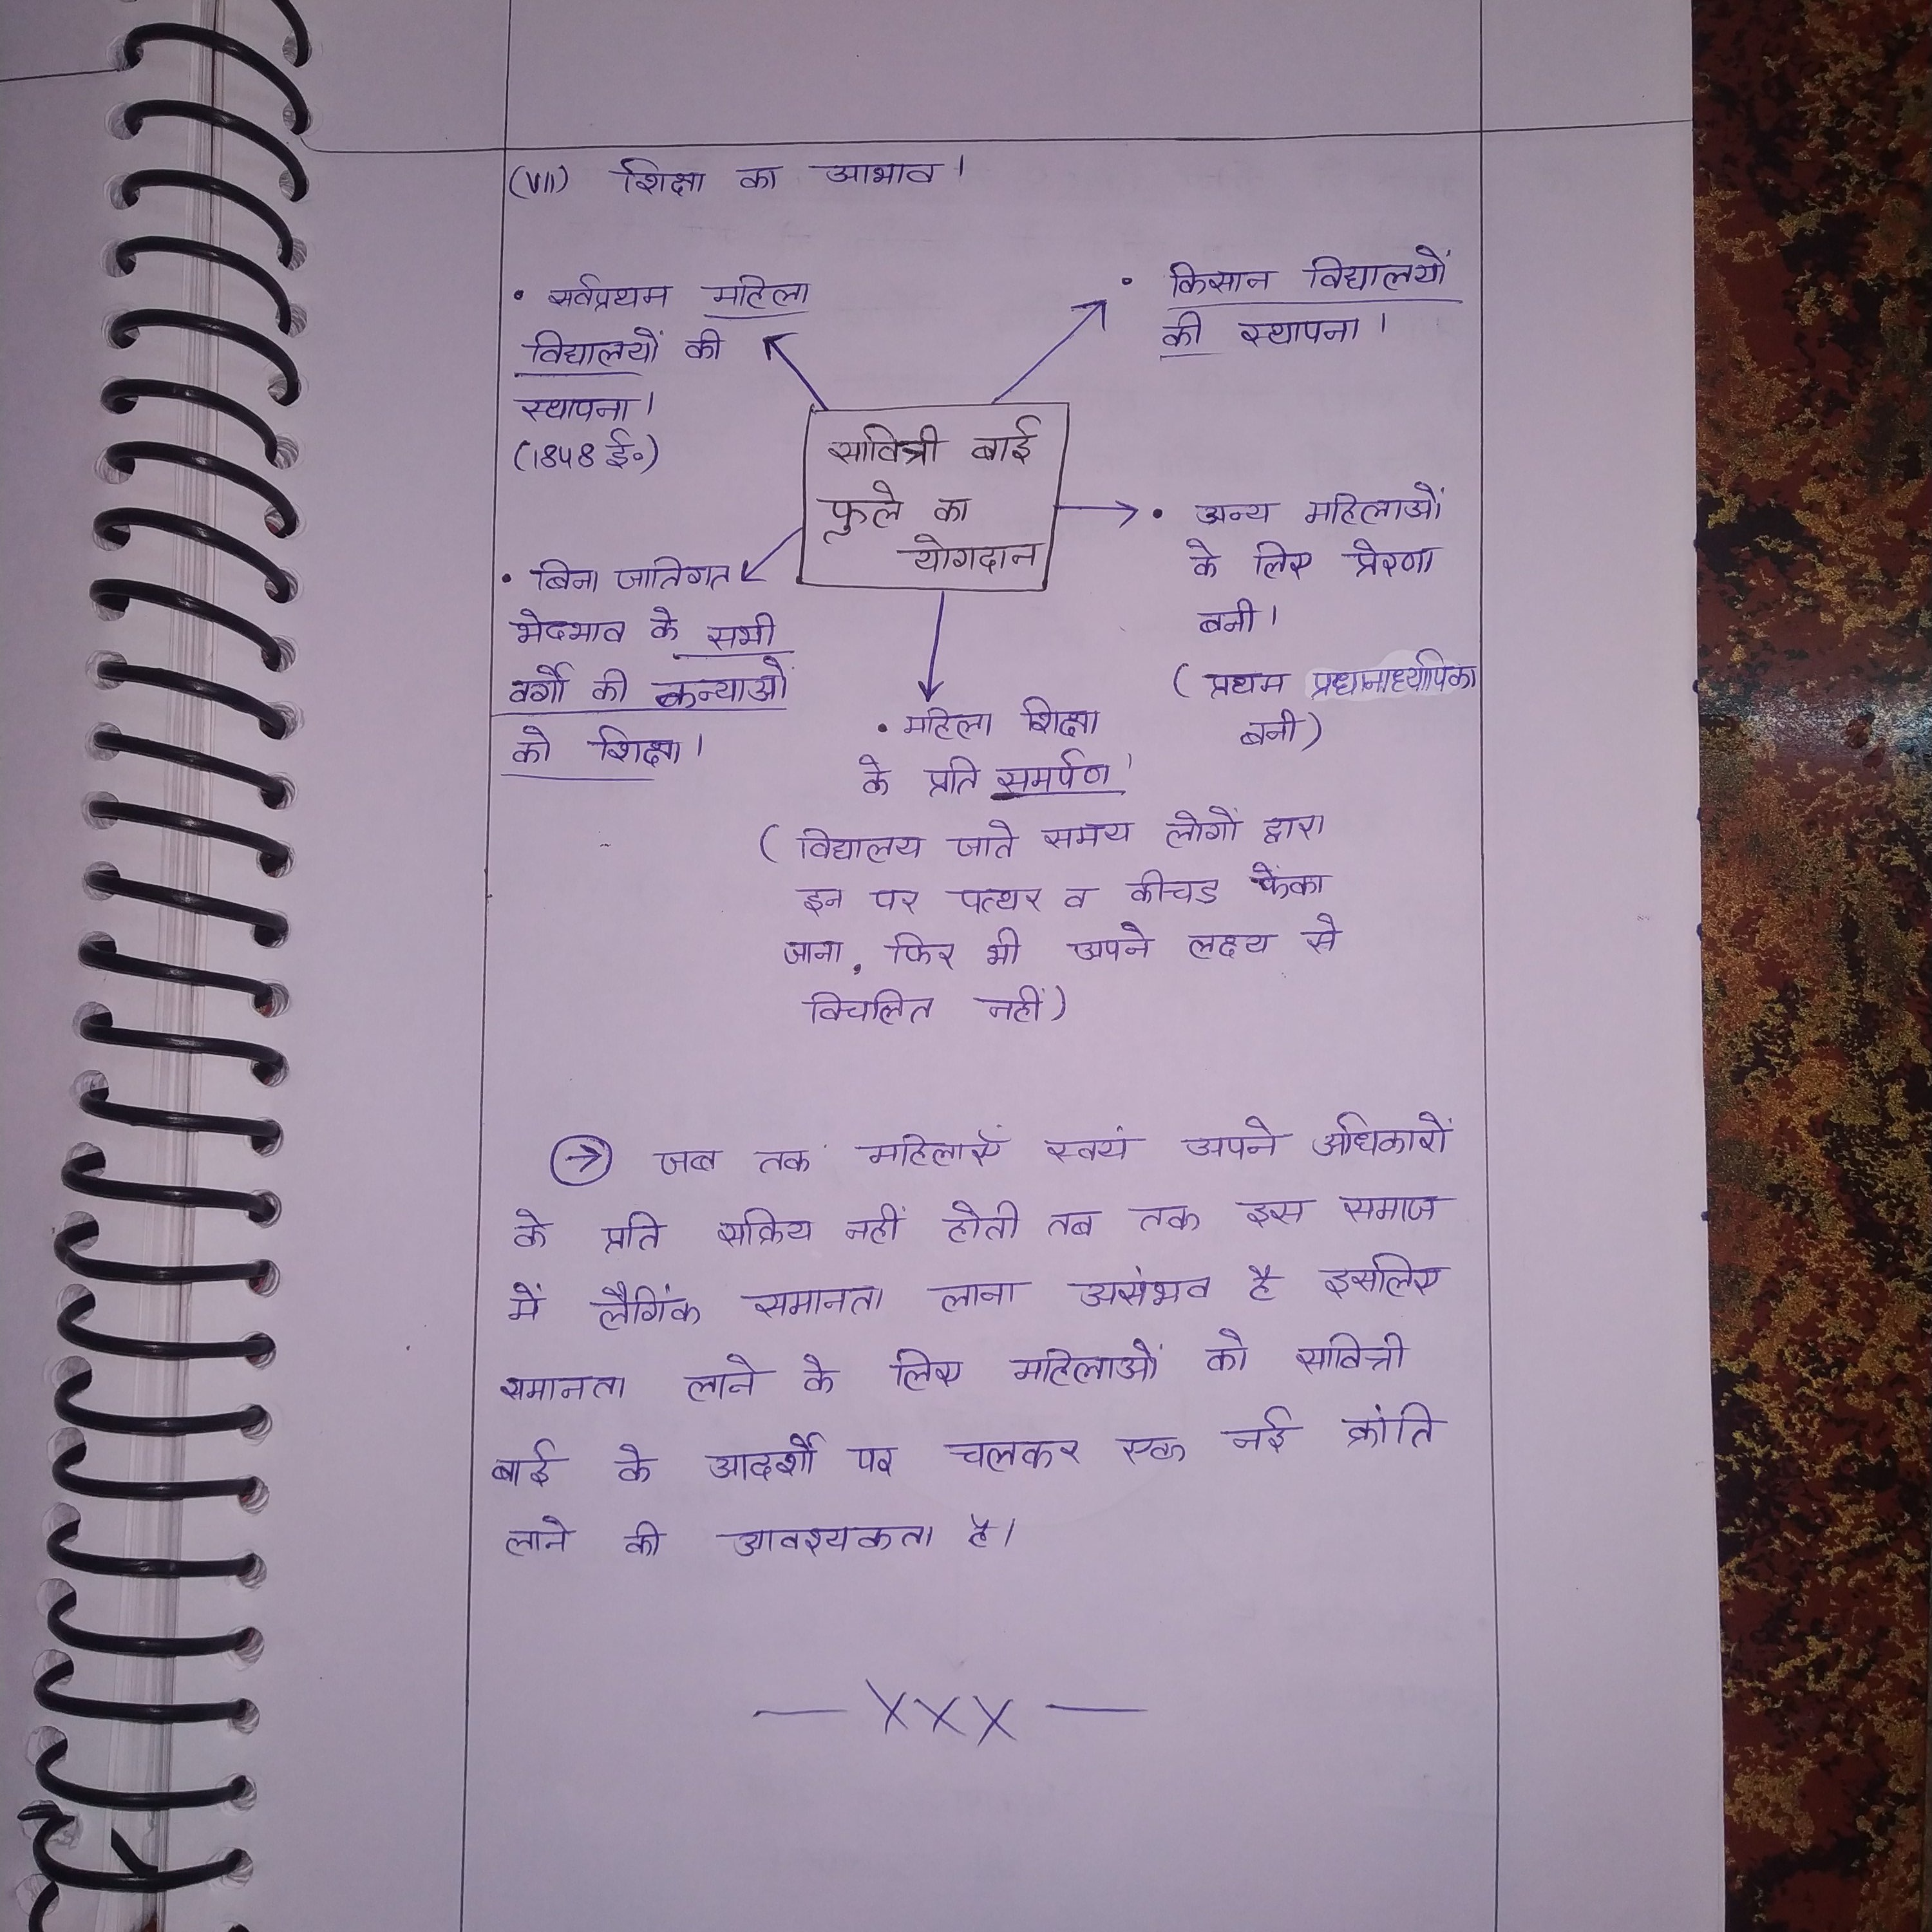 (VII) शिक्षा का आभाव।
• सर्वप्रथम महिला
विद्यालयों की
स्थापना।
(1848 ई०)
• किसान विद्यालयों
की स्थापना।
सावित्री बाई
फुले का
योगदान
• अन्य महिलाओं
के लिए प्रेरणा
बनी।
(प्रथम प्रधानाध्यापिका
बनी)
• बिना जातिगत
भेदभाव के सभी
वर्गों की कन्याओं
को शिक्षा।
• महिला शिक्षा
के प्रति समर्पण।
(विद्यालय जाते समय लोगों द्वारा
इन पर पत्थर व कीचड फेंका
जाना, फिर भी अपने लक्ष्य से
विचलित नहीं)
→ जब तक महिलाएँ स्वयं अपने अधिकारों
के प्रति सक्रिय नहीं होती तब तक इस समाज
में लैगिंक समानता लाना असंभव है इसलिए
समानता लाने के लिए महिलाओं को सावित्री
बाई के आदर्शों पर चलकर एक नई क्रांति
लाने की आवश्यकता है।
— XXX —